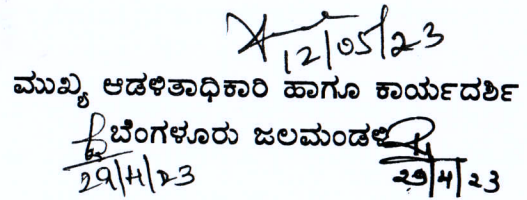 12/05/23
ಮುಖ್ಯ ಆಡಳಿತಾಧಿಕಾರಿ ಹಾಗೂ ಕಾರ್ಯದರ್ಶಿ
ಬೆಂಗಳೂರು ಜಲಮಂಡಳಿ
29/4/23 29/4/23